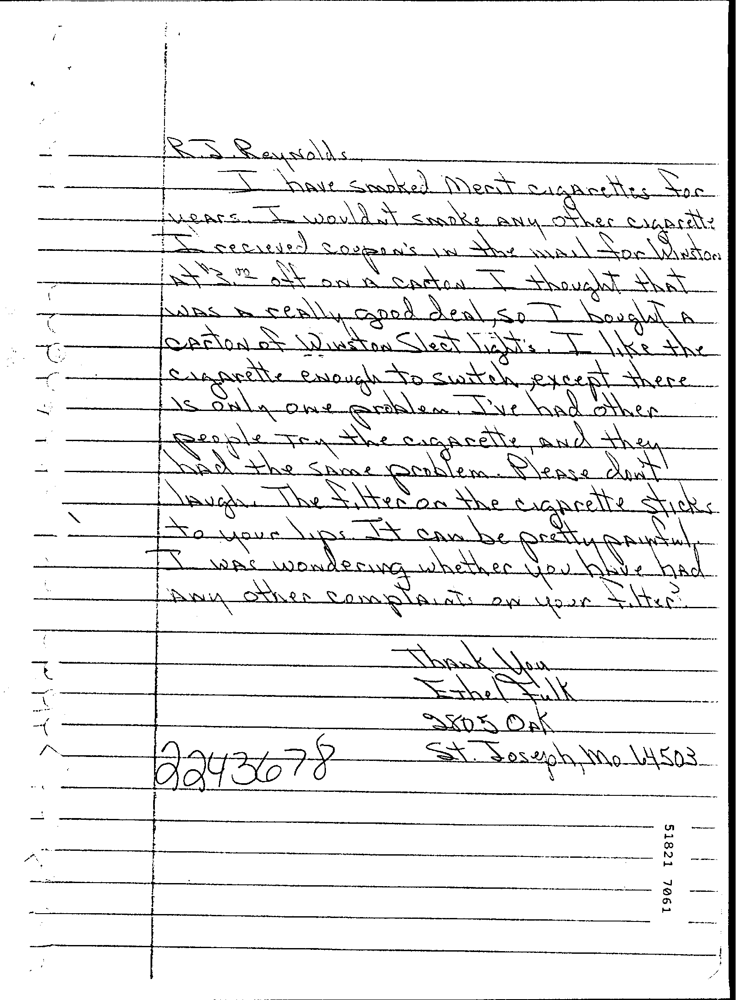 R.J. Reynolds,
I have smoked Merit cigarettes for
years. I wouldnt smoke any other cigarette
I recieved coupon's in the mail for Winston
at $3.00 off on a carton I thought that
was a really good deal, so I bought a
carton of Winston Slect light's. I like the
cigarette enough to switch, except there
is only one problem. I've had other
people try the cigarette, and they
had the same problem. Please don't
laugh. The filter on the cigarette sticks
to your lips. It can be pretty painful.
I was wondering whether you have had
any other complaints on your filter?
Thank You
Ethel Fulk
2805 Oak
St. Joseph, Mo 64503
2243678
51821 7061